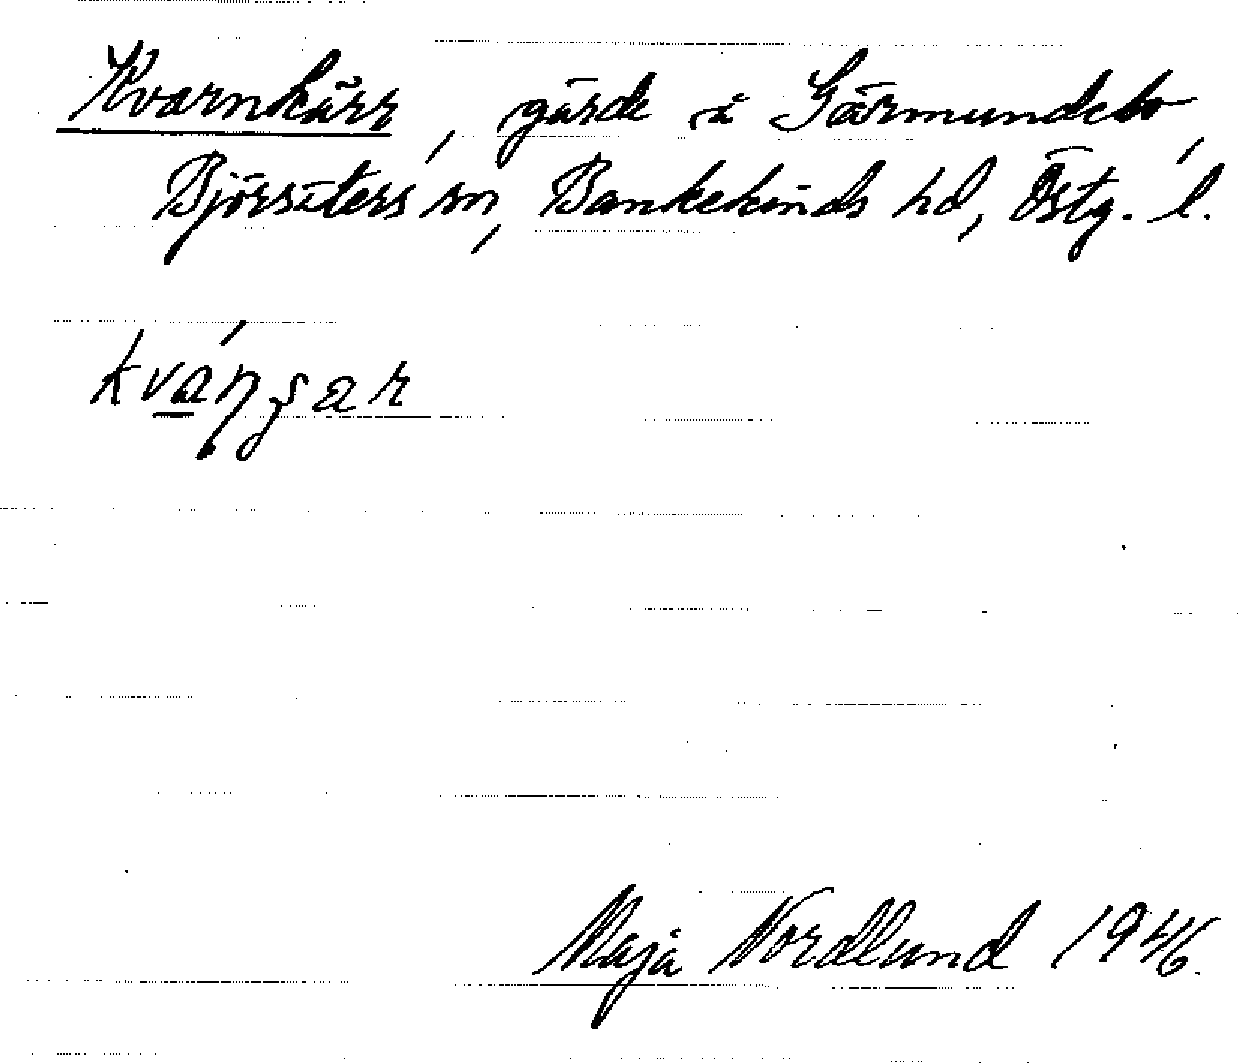 Kvarnkärr, gärde å Gärmundebo,
Björsäters sn, Bankekinds hd, Östg. l.
Maja Nordlund 1946.